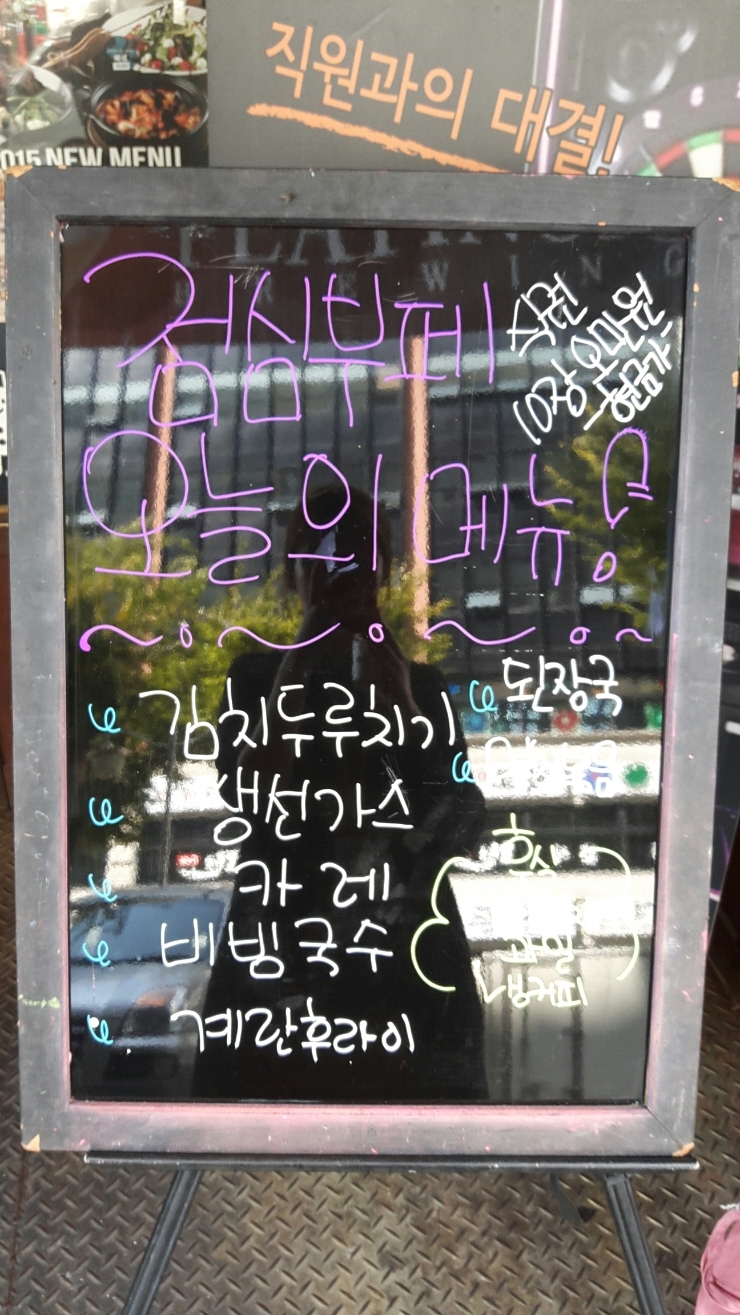 직원과의 대결!
2015 NEW MENU
점심부페
식권
10장 오만원
현금가
오늘의 메뉴!
김치두루치기
생선가스
카레
비빔국수
계란후라이
된장국
후식
과일
냉커피